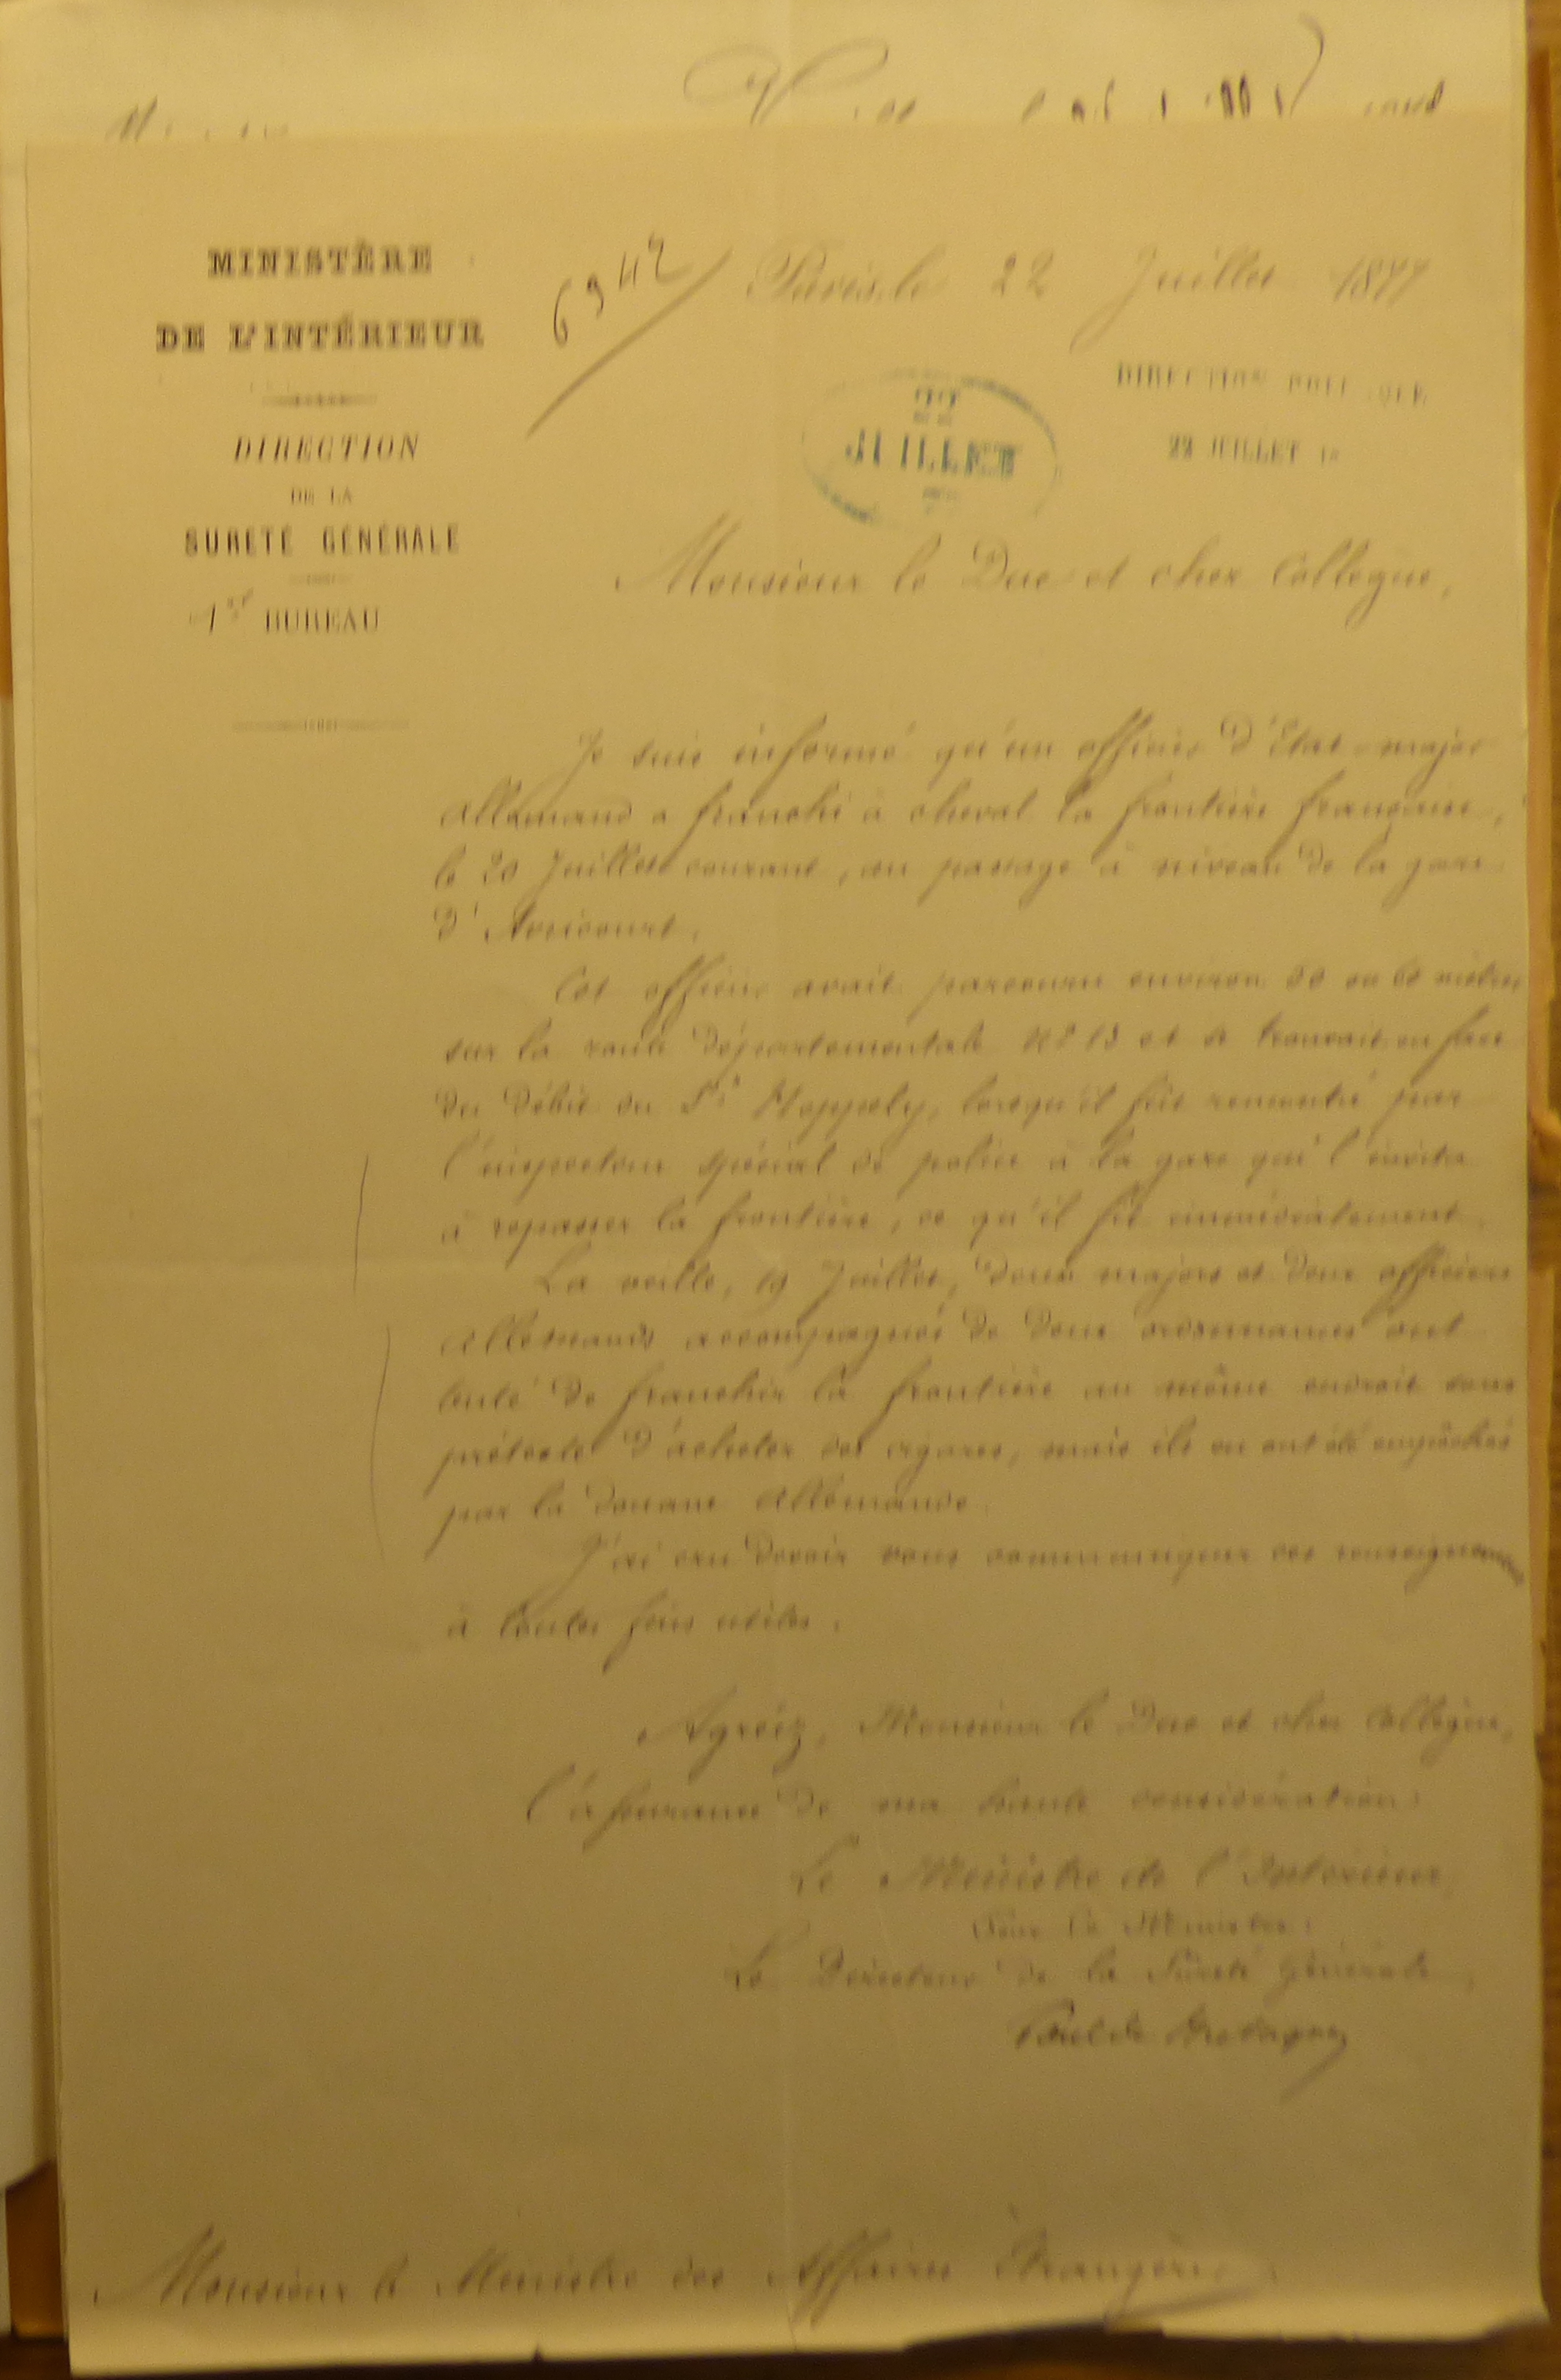 MINISTÈRE
DE L'INTÉRIEUR
DIRECTION
DE LA
SURETÉ GÉNÉRALE
1er BUREAU
6942
Paris, le 22 Juillet 1877
22
JUILLET
DIRECTION POLITIQUE
22 JUILLET 18
Monsieur le Duc et cher Collègue,
Je suis informé qu'un officier d'Etat-major
allemand a franchi à cheval la frontière française,
le 20 Juillet courant, au passage à niveau de la gare
d'Avricourt.
Cet officier avait parcouru environ 50 ou 60 mètres
sur la route départementale No 13 et se trouvait en face
du débit du Sr, lorsqu'il fut rencontré par
l'inspecteur spécial de police à la gare qui l'invita
à repasser la frontière, ce qu'il fit immédiatement.
La veille, 19 Juillet, deux majors et deux officiers
allemands accompagnés de deux ordonnances ont
tenté de franchir la frontière au même endroit sous
prétexte d'acheter des cigares, mais ils en ont été empêchés
par la douane allemande.
J'ai cru devoir vous communiquer ces renseignements
à toutes fins utiles.
Agréez, Monsieur le Duc et cher Collègue,
l'assurance de ma haute considération.
Le Ministre de l'Intérieur,
Pour le Ministre:
Le Directeur de la Sûreté Générale,
Monsieur le Ministre des Affaires Etrangères.